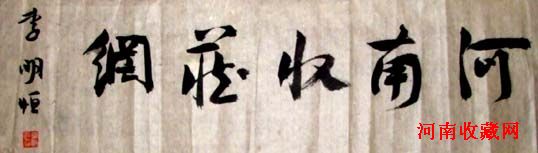 河南收藏網
李明恒
河南收藏网